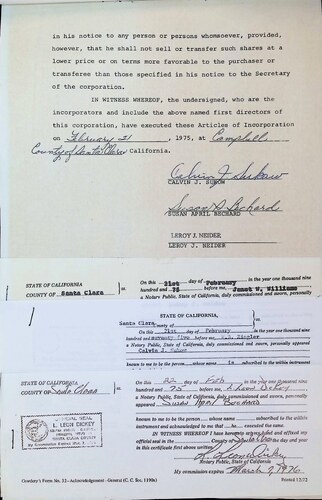 in his notice to any person or persons whomsoever, provided,
however, that he shall not sell or transfer such shares at a
lower price or on terms more favorable to the purchaser or
transferee than those specified in his notice to the Secretary
of the corporation.
IN WITNESS WHEREOF, the undersigned, who are the
incorporators and include the above named first directors of
this corporation, have executed these Articles of Incorporation
on February 21, 1975, at Campbell
County of Santa Clara California.
CALVIN J.
SUSAN APRIL BECHARD
LEROY J. NEIDER
LEROY J. NEIDER
STATE OF CALIFORNIA
COUNTY OF Santa Clara
On this 21st day of February in the year one thousand nine
hundred and 75 before me, Janet W. Williams
a Notary Public, State of California, duly commissioned and sworn, personally
Santa Clara County of
On this 21st day of February in the year one thousand
nine hundred and seventy five before me
a Notary Public, State of California, duly commissioned and sworn, personally appeared
Calvin J.
known to me to be the person whose name is subscribed to the within instrument
STATE OF CALIFORNIA
COUNTY OF Santa Clara
On this 22 day of Feb in the year one thousand nine
hundred and 75 before me, L Leon Dickey
a Notary Public, State of California, duly commissioned and sworn, personally
appeared Susan April Bechard
known to me to be the person whose name subscribed to the within instrument
and acknowledged to me that he executed the same.
IN WITNESS WHEREOF I have hereunto set my hand and affixed my
official seal in the County of
certificate first above written.
OFFICIAL SEAL
L. LEON DICKEY
L Leon Dickey
Notary Public, State of California.
My commission expires March 7, 1976
Cowdery's Form No. 32—Acknowledgment—General (C. C. Sec. 1190a)
Printed 12/72